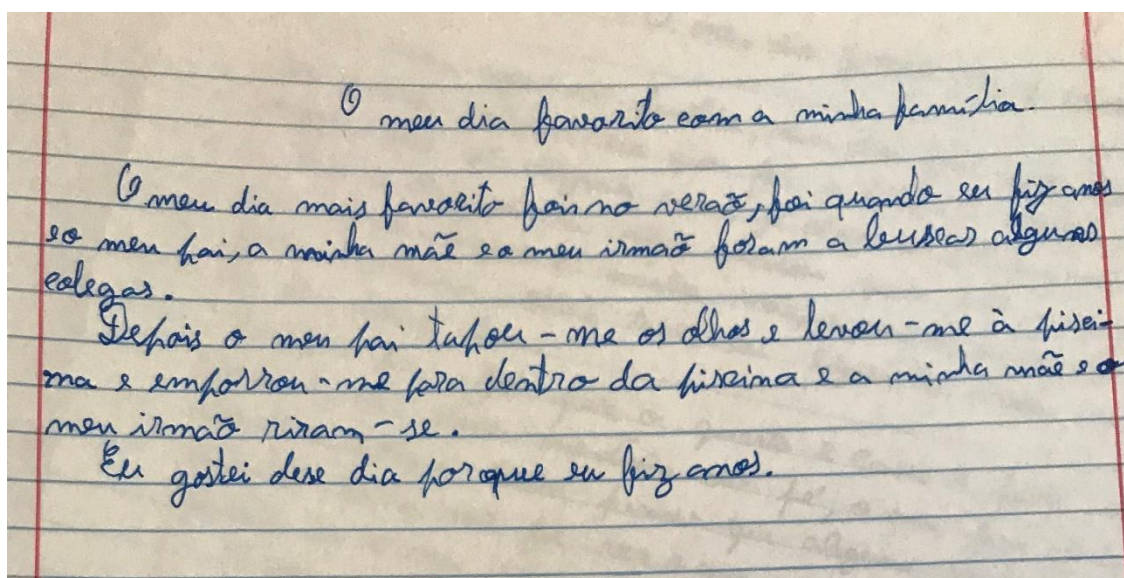 O meu dia favorito com a minha família.
O meu dia mais favorito foi no verão, foi quando eu fiz anos
e o meu pai, a minha mãe e o meu irmão foram a buscar alguns
colegas.
Depois o meu pai tapou-me os olhos e levou-me à pisci-
na e emporrou-me para dentro da piscina e a minha mãe e o
meu irmão riram-se.
Eu gostei dese dia porque eu fiz anos.